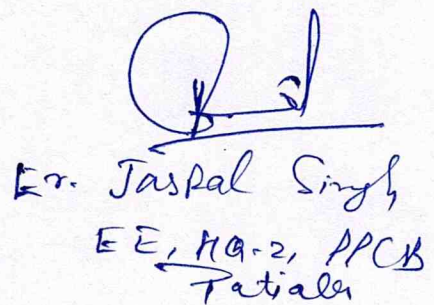 Er. Jaspal Singh
EE, HQ-2, PPCB
Patiala